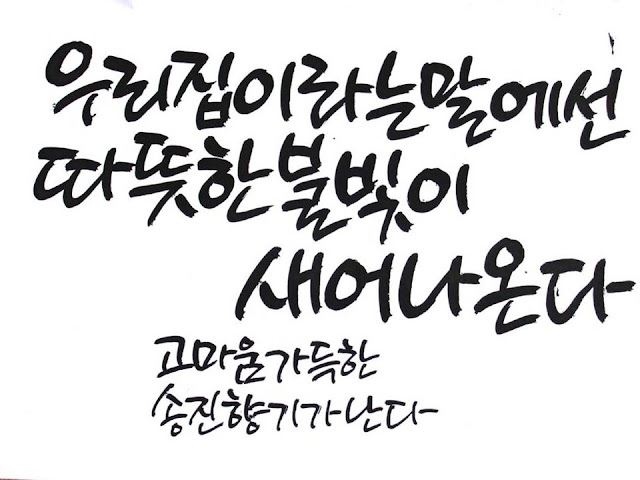 우리집이라는말에선
따뜻한불빛이
새어나온다
고마움가득한
송진향기가난다